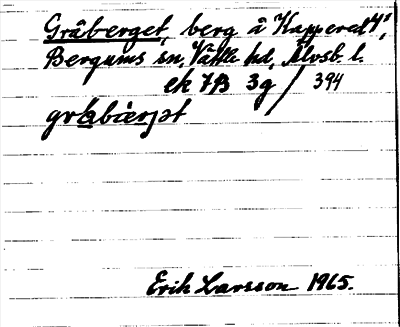 Gråberget, berg å Kapperet 1⁴,
Bergums sn, Vättle hd, Älvsb. l.
ek 7B 3g / 394
gråbærjət
Erik Larsson 1965.